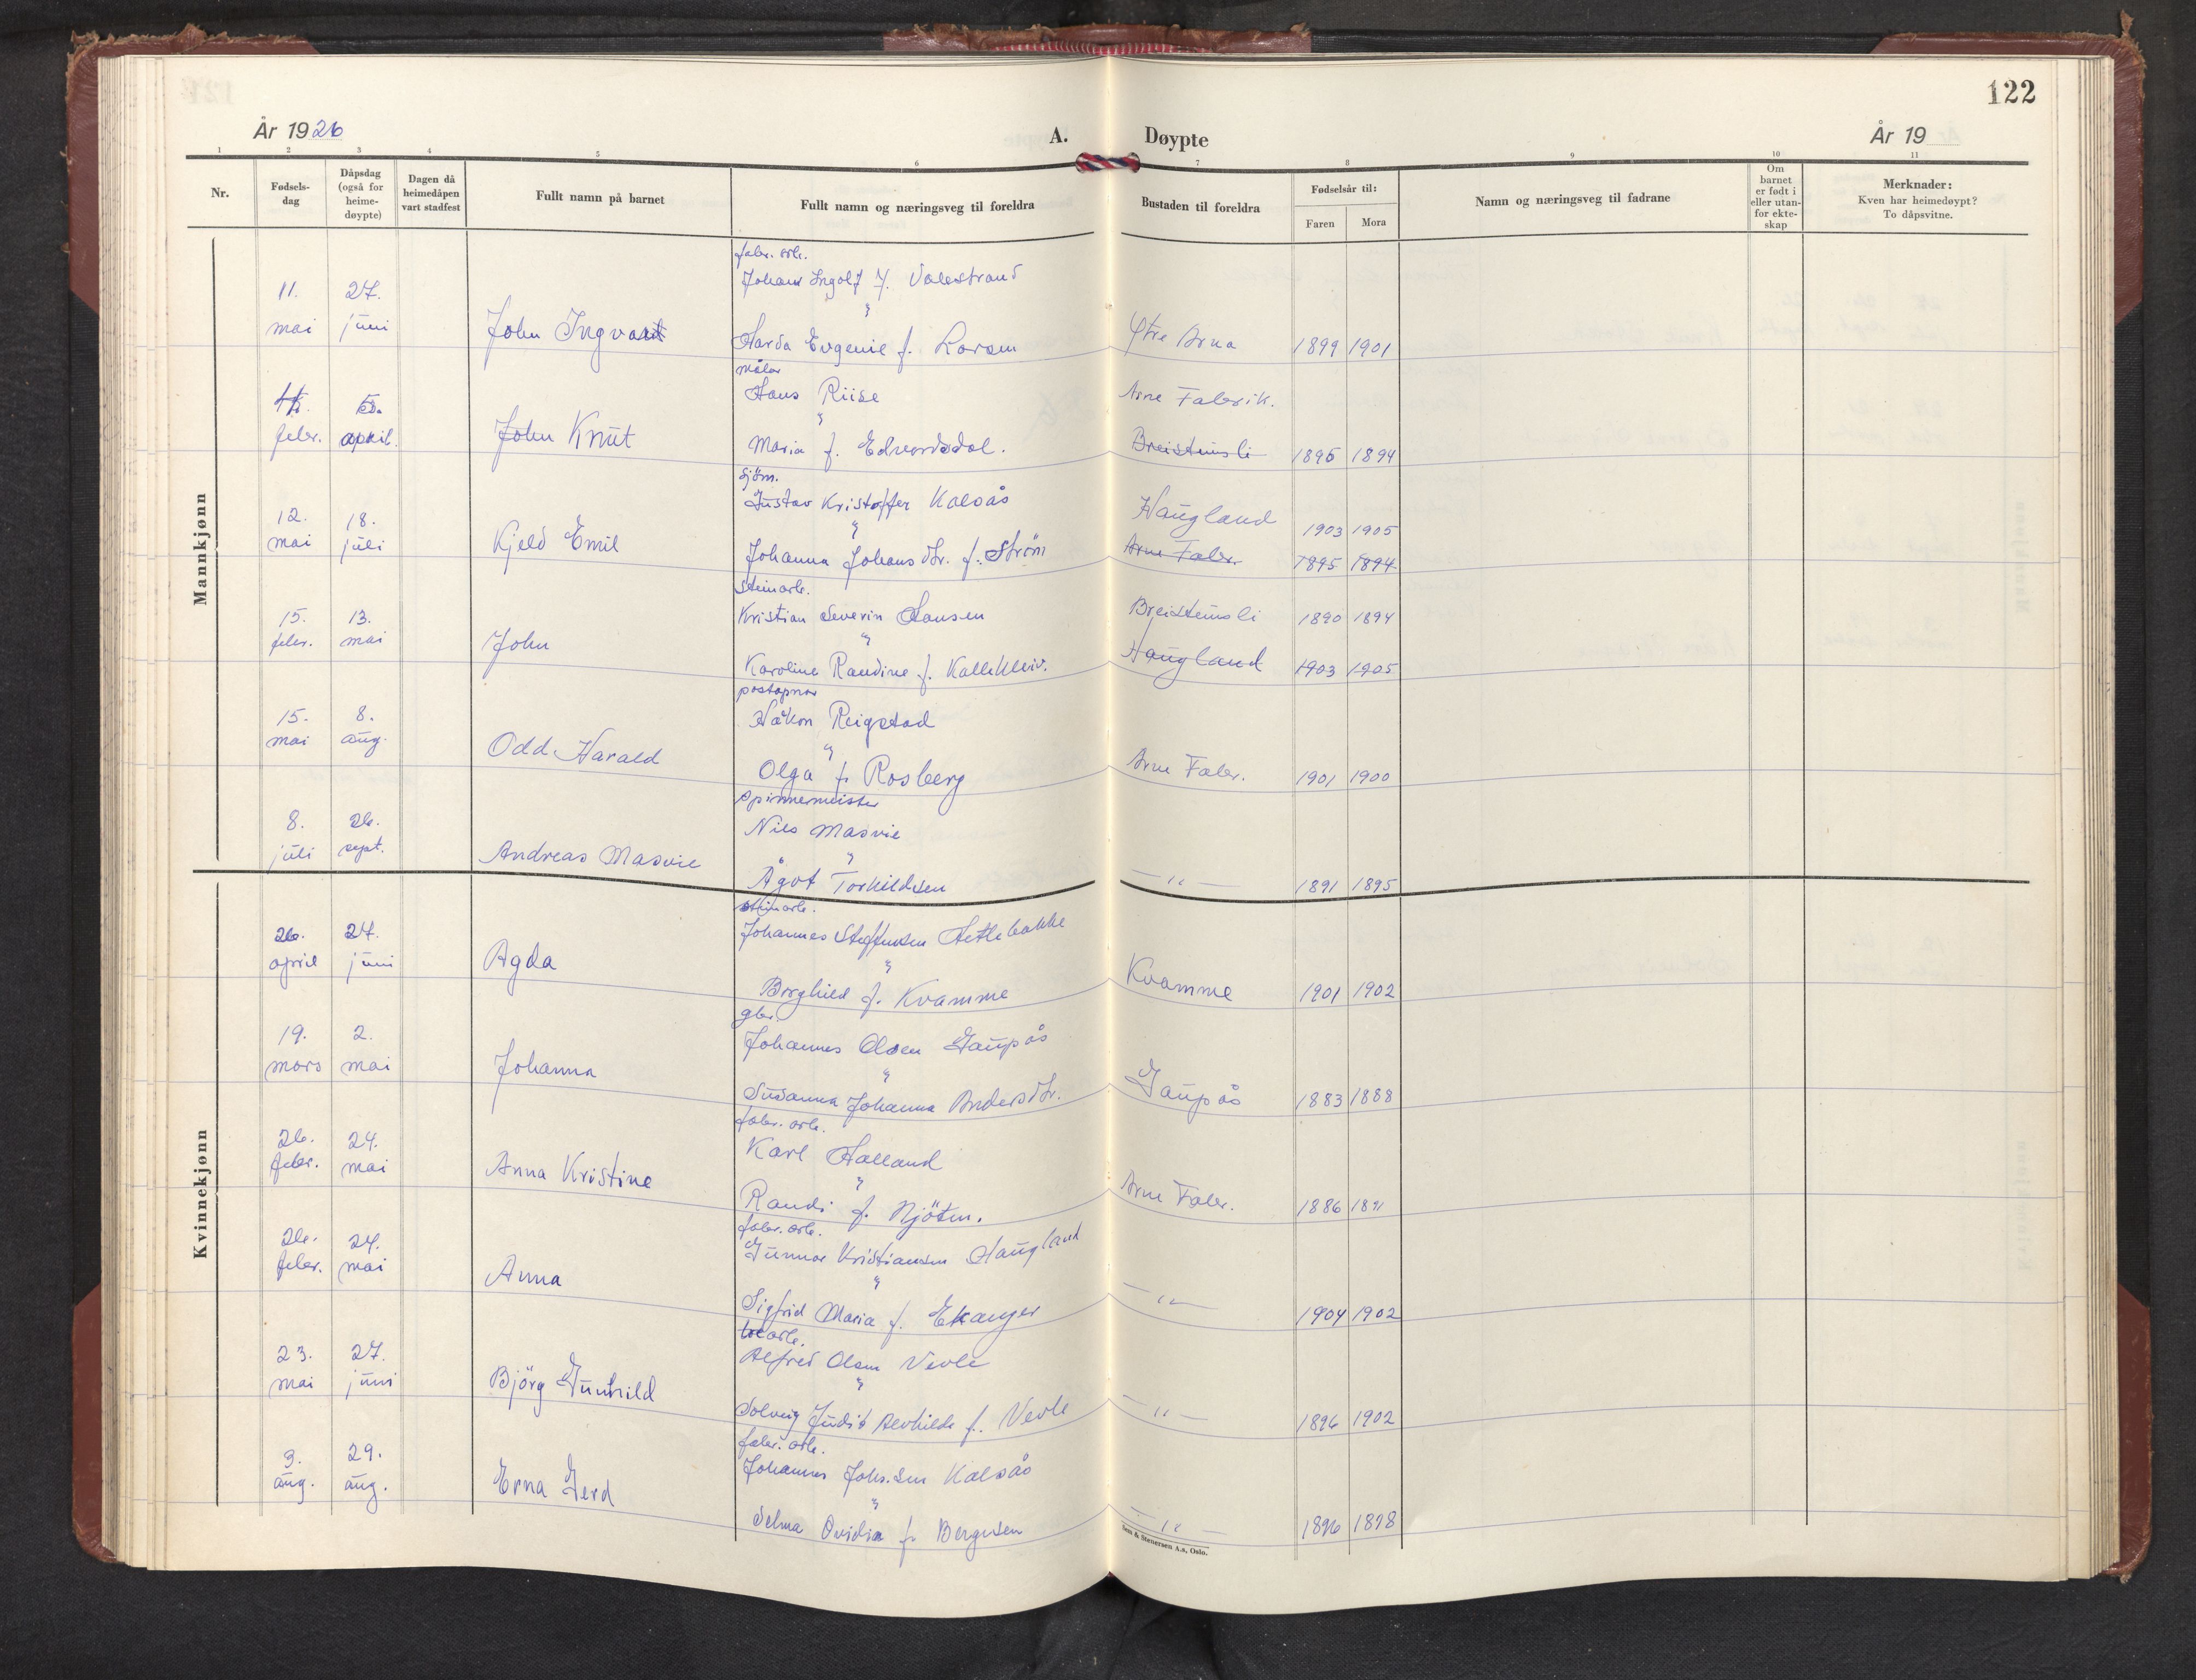 122
År 1926
A. Døypte
År 19
1 2 3 4 5 6 7 8 9 10 11
Nr.
Fødsels-
dag
Dåpsdag
(også for
heime-
døypte)
Dagen då
heimedåpen
vart stadfest
Fullt namn på barnet
Fullt namn og næringsveg til foreldra
Bustaden til foreldra
Fødselsår til:
Faren Mora
Namn og næringsveg til fadrane
Om
barnet
er født i
eller utan-
for ekte-
skap
Merknader:
Kven har heimedøypt?
To dåpsvitne.
Mannkjønn
fabr. arb.
Johans Ingolf J. Valestrand
11. 27.
mai juni
John Ingvart
"
Harda Evgenie f. Larsen
Ytre Arna 1899 1901
målar
Hans Riise
Arne Fabrik.
5.
febr. april.
John Knut
"
Maria f. Edvardsdal.
Breisteinsli 1895 1894
sjöm.
Gustav Kristoffer Kalsås
Haugland 1903 1905
12. 18.
mai juli
Kjeld Emil
"
Johanna Johansdtr. f. Ström
Arne Fabr. 1895 1894
steinarb.
Kristian Severin Hansen
Breisteinsli 1890 1894
15. 13.
febr. mai
John
"
Karoline Randine f. Kallekleiv.
Haugland 1903 1905
postopnar
Håkon Reigstad
15. 8.
mai aug.
Odd Harald
"
Olga f. Rosberg
Arne Fabr. 1901 1900
spinnemeister
Nils Masvie
8. 26.
juli sept.
Andreas Masvie
"
Ågot Torkildsen
— " — 1891 1895
Kvinnekjønn
steinarb.
Johannes Steffensen Hettlebakke
26. 27.
april juni
Agda
"
Borghild f. Kvamme
Kvamme 1901 1902
gbr.
Johannes Olsen Gaupås
19. 2.
mars mai
Johanna
"
Susanna Johanna Andersdtr.
Gaupås 1883 1888
fabr. arb.
Karl Halland
26. 24.
febr. mai
Anna Kristine
"
Randi f. Njöten.
Arne Fabr. 1886 1891
fabr. arb.
Gunnar Kristiansen Haugland
26. 24.
febr. mai
Anna
"
Sigfrid Maria f. Ekanger
— " — 1904 1902
Alfred Olsen Vevle
23. 27.
mai juni
Björg Gunhild
"
Solveig Judit Alvhilde f. Vevle
— " — 1896 1902
fabr. arb.
Johannes Johs.sen Kalsås
3. 29.
aug. aug.
Erna Gerd
"
Selma Ovidia f. Bergesen
— " — 1896 1898
Sem & Stenersen A.s, Oslo.